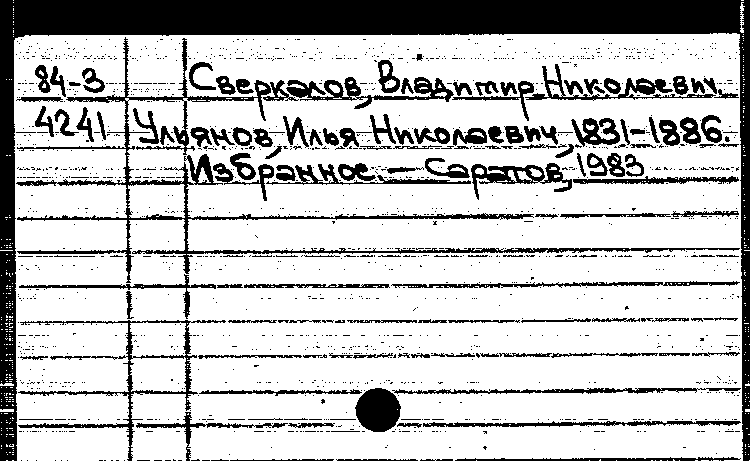 84-3 Сверкалов, Владимир Николаевич.
4241 Ульянов, Илья Николаевич, 1831-1886.
Избранное. — Саратов, 1983